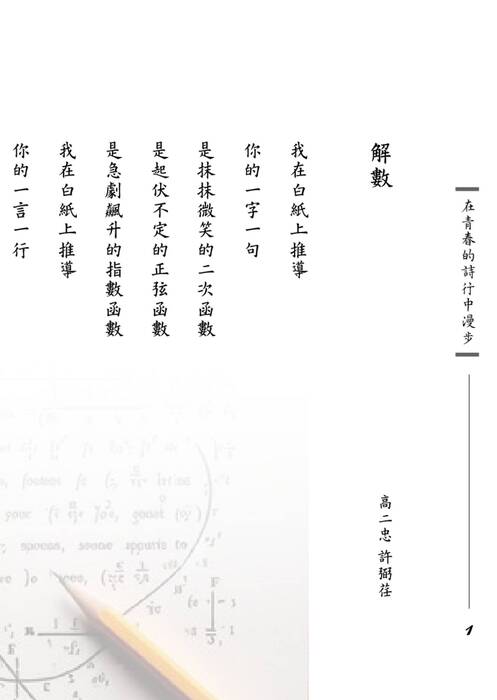 在青春的詩行中漫步
1
解數
高二忠 許弼荏
我在白紙上推導
你的一字一句
是抹抹微笑的二次函數
是起伏不定的正弦函數
是急劇飆升的指數函數
我在白紙上推導
你的一言一行